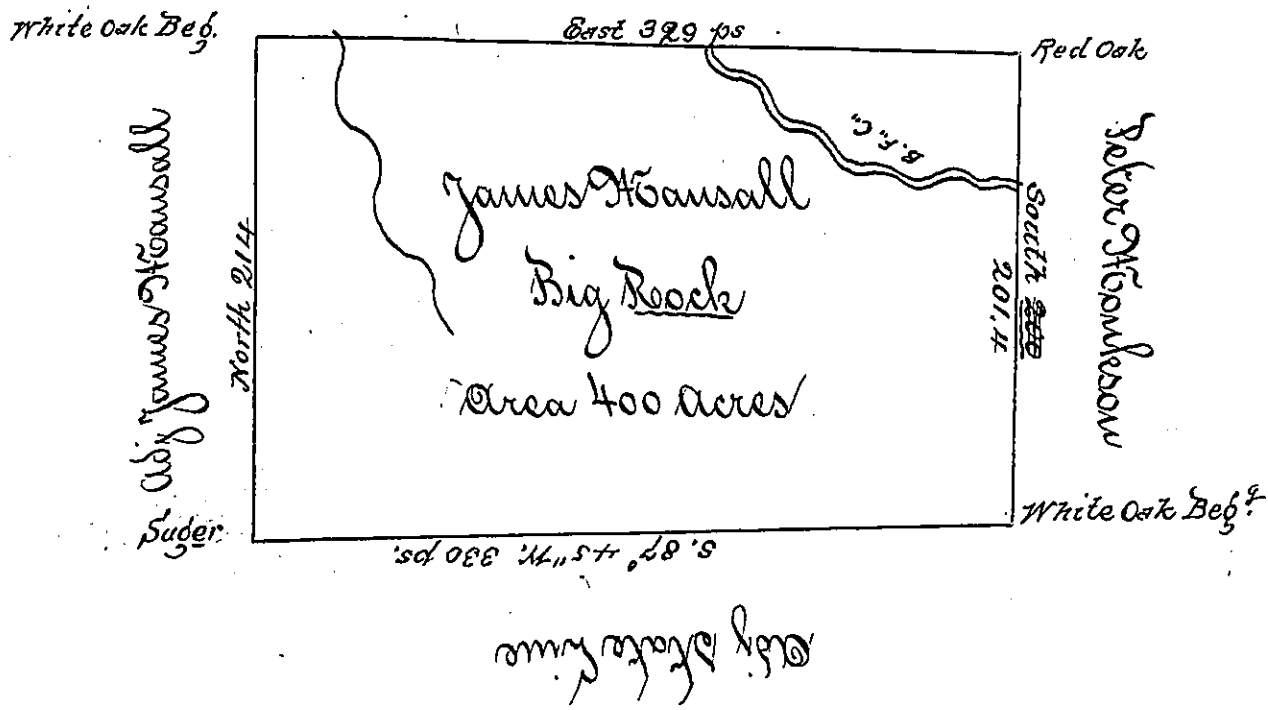 White Oak Beg.
East 329 ps
Red Oak
Adj James Hansall
North 214
James Hansall
Big Rock
Area 400 Acres
B. F., C,,
South
201.4
Peter Honkson
Suger.
White Oak Begg.
S. 87° 45" W. 330 ps.
Adj State Line